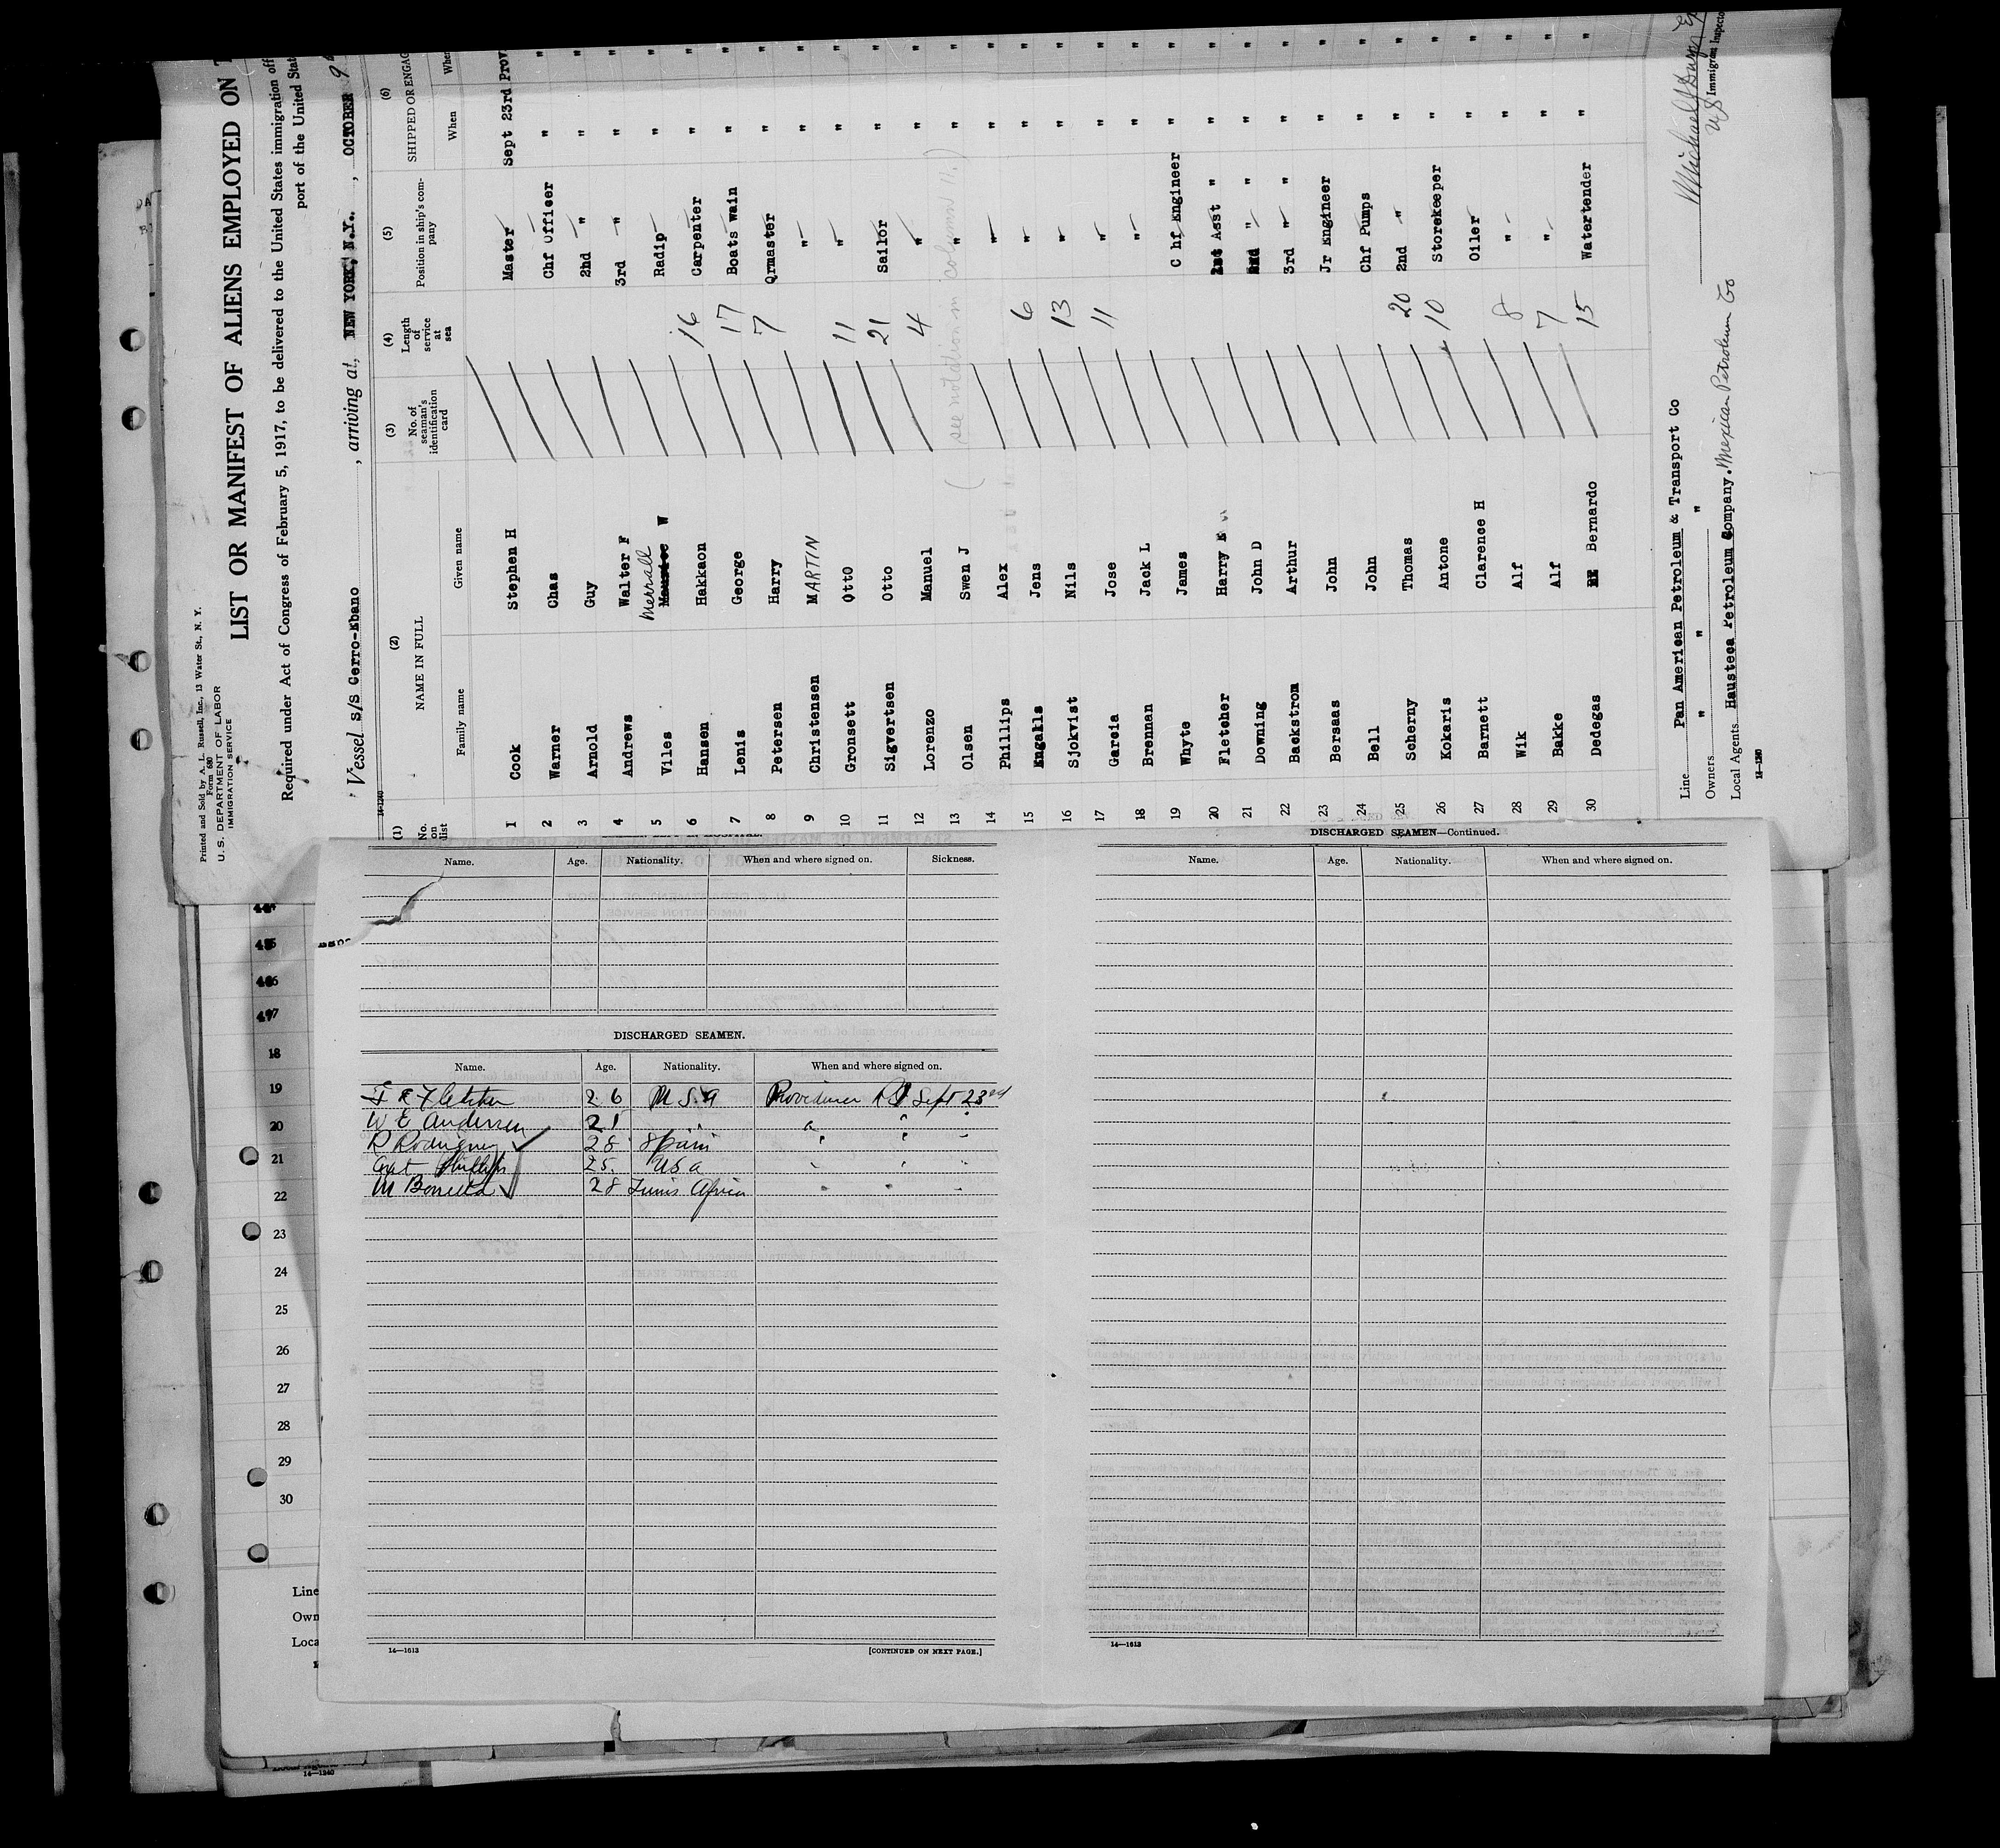 Printed and Sold by A. L. Russell, Inc., 13 Water St., N. Y.
Form 680
U. S. DEPARTMENT OF LABOR
IMMIGRATION SERVICE
LIST OR MANIFEST OF ALIENS EMPLOYED ON
Required under Act of Congress of February 5, 1917, to be delivered to the United States immigration
port of the United
Vessel s/s Cerro-Ebano , arriving at, NEW YORK, N.Y. , OCTOBER 9
14-1240
(1) No. on list (2) NAME IN FULL (3) No. of seaman's identification card (4) Length of service at sea (5) Position in ship's company (6) SHIPPED OR
Family name Given name When
1 Cook Stephen H Master Sept 23rd
2 Warner Chas Chf Officer " "
3 Arnold Guy 2nd " " "
4 Andrews Walter F 3rd " " "
5 Viles Merrall W Radip " "
6 Hansen Hakkaon 16 Carpenter " "
7 Lenis George 17 Boats wain " "
8 Petersen Harry 7 Qrmaster " "
9 Christensen MARTIN " " "
10 Gronsett Otto 11 " " "
11 Sigvertsen Otto 21 Sailor " "
12 Lorenzo Manuel 4 " " "
13 Olsen Swen J (see notation in column 11.) " " "
14 Phillips Alex " " "
15 Engakls Jens 6 " " "
16 Sjokvist Nils 13 " " "
17 Garcia Jose 11 " " "
18 Brennan Jack L " " "
19 Whyte James C hf Engineer " "
20 Fletcher Harry E Asst " " "
21 Downing John D " " " "
22 Backstrom Arthur 3rd " " " "
23 Bersaas John Jr Engineer " "
24 Bell John Chf Pumps " "
25 Scherny Thomas 20 2nd " " "
26 Kokaris Antone 10 Storekeeper " "
27 Barnett Clarence H Oiler " "
28 Wik Alf 8 " " "
29 Bakke Alf 7 " " "
30 Dedegas Bernardo 15 Watertender " "
Line Pan American Petroleum & Transport Co
Owners " " "
Local Agents Hausteca Petroleum Company. Mexican Petroleum Co
Immigrant
14-1240
Name. Age. Nationality. When and where signed on. Sickness.
DISCHARGED SEAMEN.
Name. Age. Nationality. When and where signed on.
Fletcher 26 U S A Providence R I Sept 23rd
W E Andersen 21 " " " "
R Rodriguez 28 Spain " " "
Phillips 25. USA " " "
M 28 Tunis Africa " " "
14—1613
[CONTINUED ON NEXT PAGE.]
DISCHARGED SEAMEN—Continued.
Name. Age. Nationality. When and where signed on.
14—1613
18
19
20
21
22
23
24
25
26
27
28
29
30
Line
Own
Loca
14—1240